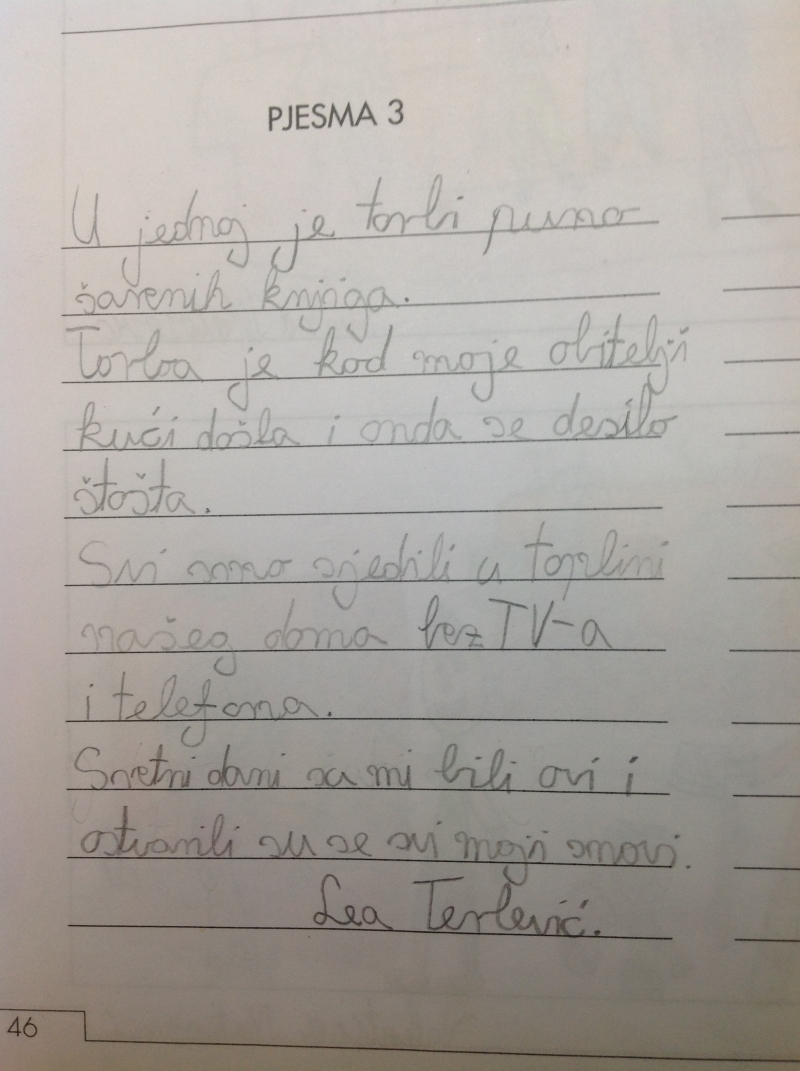 PJESMA 3
U jednoj je torbi puno
šarenih knjiga.
Torba je kod moje obitelji
kući došla i onda se desilo
štošta.
Svi smo sjedili u toplini
našeg doma bez TV-a
i telefona.
Sretni dani su mi bili ovi i
ostvarili su se svi moji snovi.
Lea Terlević.
46